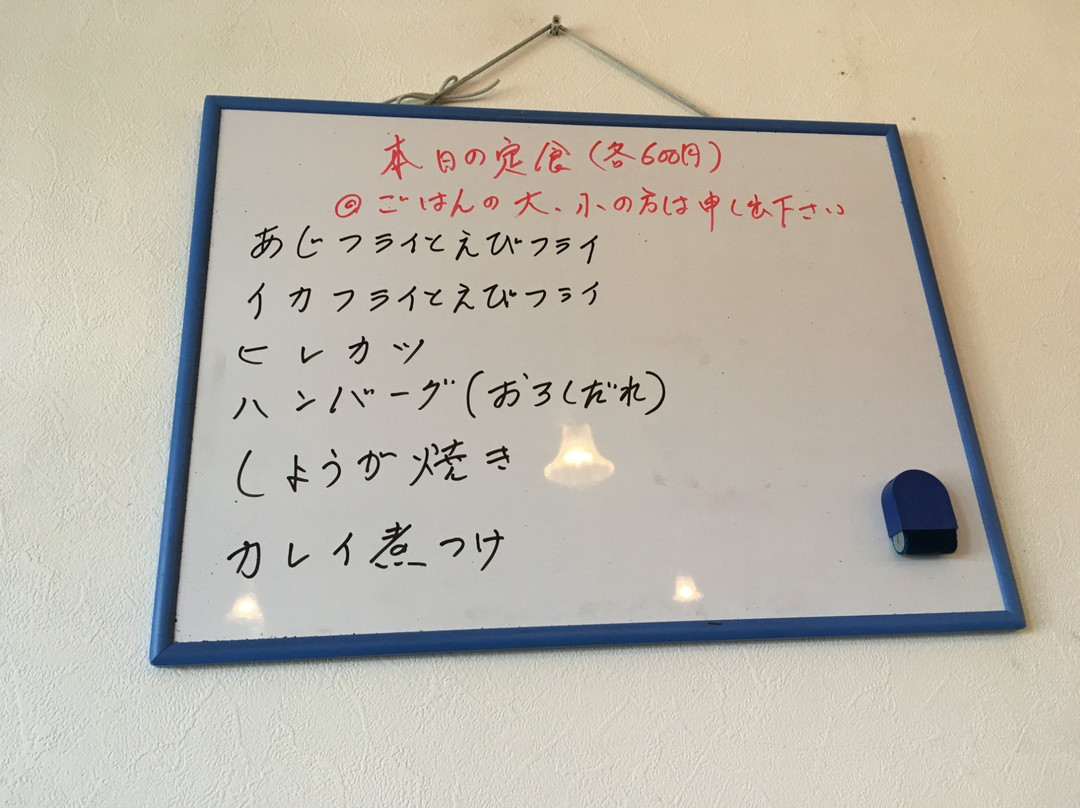 本日の定食(各600円)
◎ごはんの大、小の方は申し出下さい
あじフライとえびフライ
イカフライとえびフライ
ヒレカツ
ハンバーグ(おろしだれ)
しょうが焼き
カレイ煮つけ